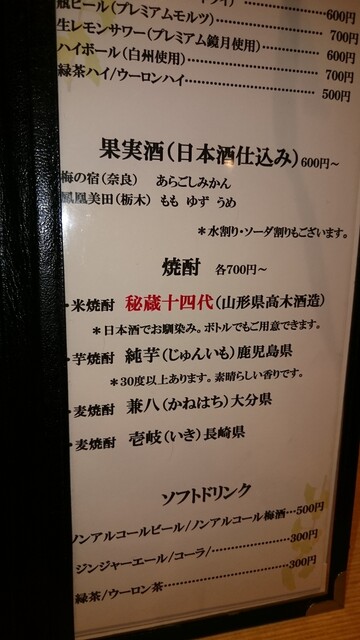 瓶ビール(プレミアムモルツ)………………600円
生レモンサワー(プレミアム鏡月使用)………700円
ハイボール(白州使用)………………600円
緑茶ハイ/ウーロンハイ………………700円
500円
果実酒(日本酒仕込み)600円~
梅の宿(奈良) あらごしみかん
鳳凰美田(栃木) もも ゆず うめ
*水割り・ソーダ割りもございます。
焼酎 各700円~
・米焼酎 秘蔵十四代(山形県高木酒造)
*日本酒でお馴染み。ボトルでもご用意できます。
・芋焼酎 純芋(じゅんいも)鹿児島県
*30度以上あります。素晴らしい香りです。
・麦焼酎 兼八(かねはち)大分県
・麦焼酎 壱岐(いき)長崎県
ソフトドリンク
ノンアルコールビール/ノンアルコール梅酒…500円
ジンジャーエール/コーラ/………………300円
緑茶/ウーロン茶………………300円